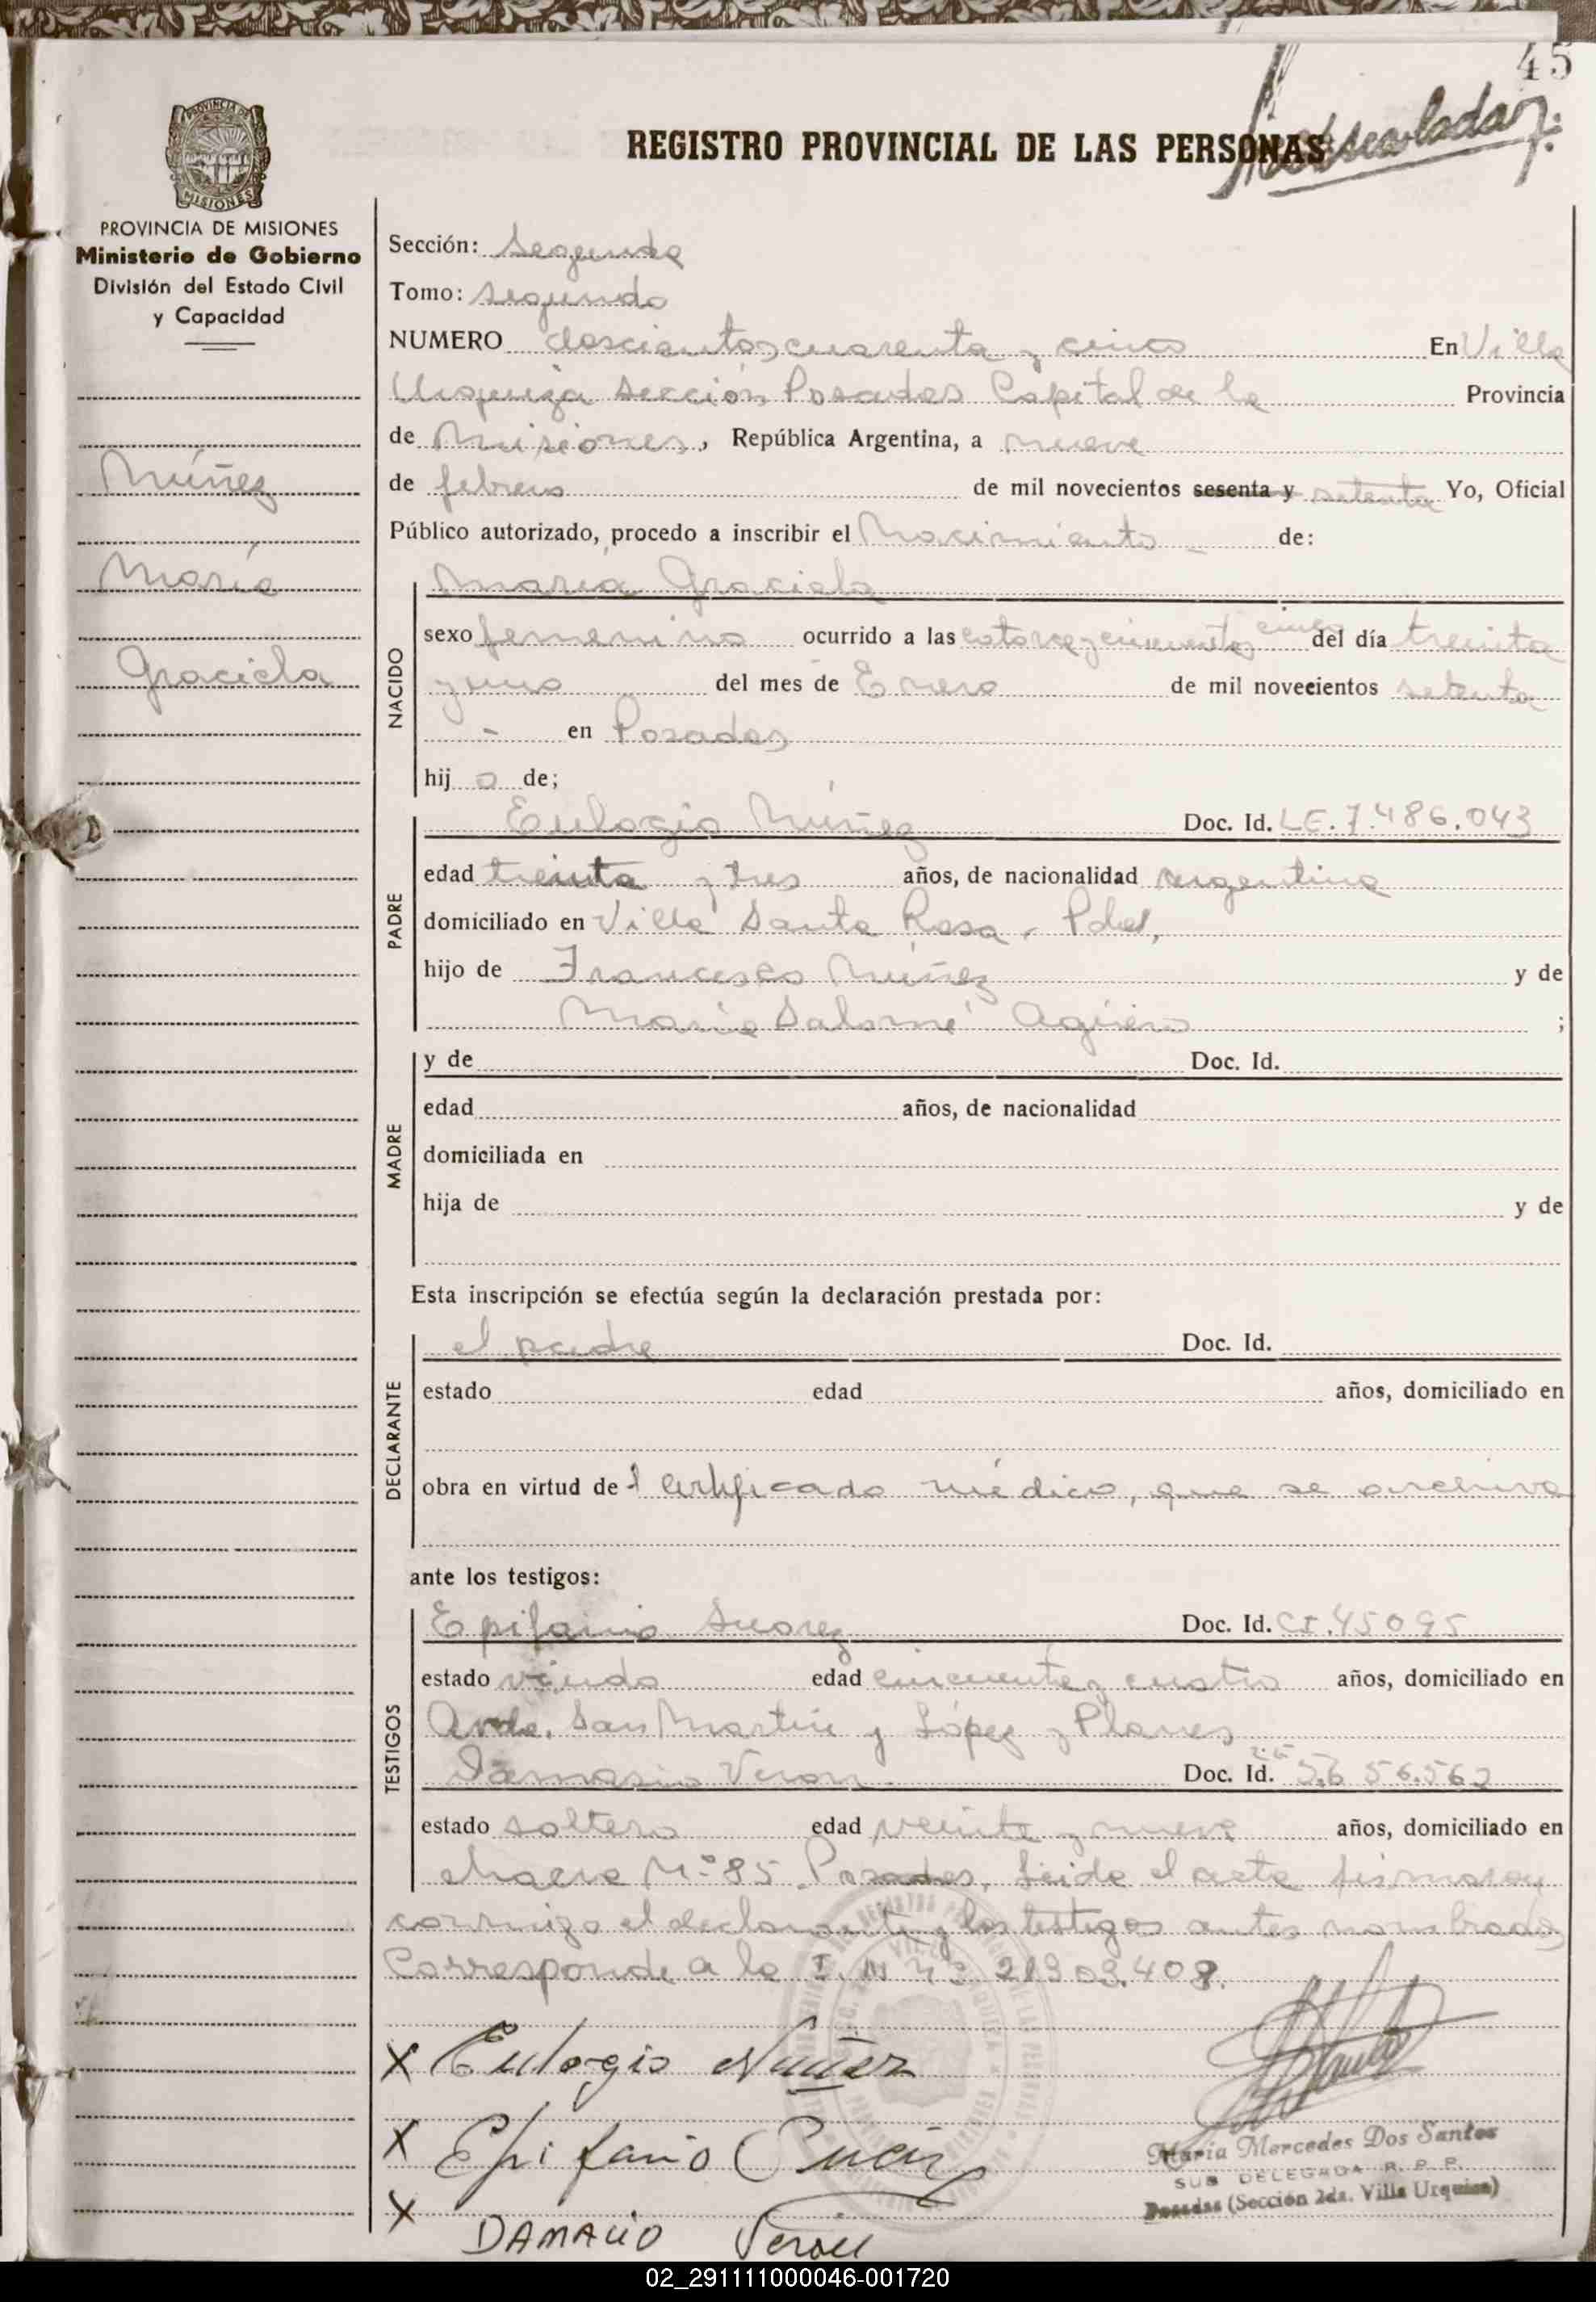 45
PROVINCIA DE
MISIONES
REGISTRO PROVINCIAL DE LAS PERSONAS
PROVINCIA DE MISIONES
Ministerio de Gobierno
División del Estado Civil
y Capacidad
Núñez
María
Graciela
Sección: Segunda
Tomo: segundo
NUMERO doscientos cuarenta y cinco En Villa
Urquiza Sección Posadas Capital de la Provincia
de Misiones, República Argentina, a nueve
de febrero de mil novecientos sesenta y setenta Yo, Oficial
Público autorizado, procedo a inscribir el Nacimiento - de:
NACIDO
María Graciela
sexo femenino ocurrido a las catorce y cincuenta cinco del día treinta
y uno del mes de Enero de mil novecientos setenta
- en Posadas
hij a de;
PADRE
Eulogio Núñez Doc. Id. LE. 7.486.043
edad treinta y tres años, de nacionalidad argentina
domiciliado en Villa Santa Rosa - Pdas,
hijo de Francisco Núñez y de
María Salomé Agüero ;
MADRE
y de Doc. Id.
edad años, de nacionalidad
domiciliada en
hija de y de
Esta inscripción se efectúa según la declaración prestada por:
DECLARANTE
el padre Doc. Id.
estado edad años, domiciliado en
obra en virtud de l certificado médico, que se archiva
ante los testigos:
TESTIGOS
Epifanio Suarez Doc. Id. CI.45095
estado viudo edad cincuenta y cuatro años, domiciliado en
Avda. San Martín y López y Planes
Damasio Veron Doc. Id. 5.656.562
estado soltero edad veinte y nueve años, domiciliado en
chacra Nº 85 Posadas. Leida el acta firmaron
conmigo el declarante y los testigos antes nombrados
Corresponde a la I. N Nº 21303.408.
X Eulogio Nuñez
X Epifanio
X DAMACIO Veron
María Mercedes Dos Santos
SUB DELEGADA R. P. P.
Posadas (Sección 2da. Villa Urquiza)
02_291111000046-001720